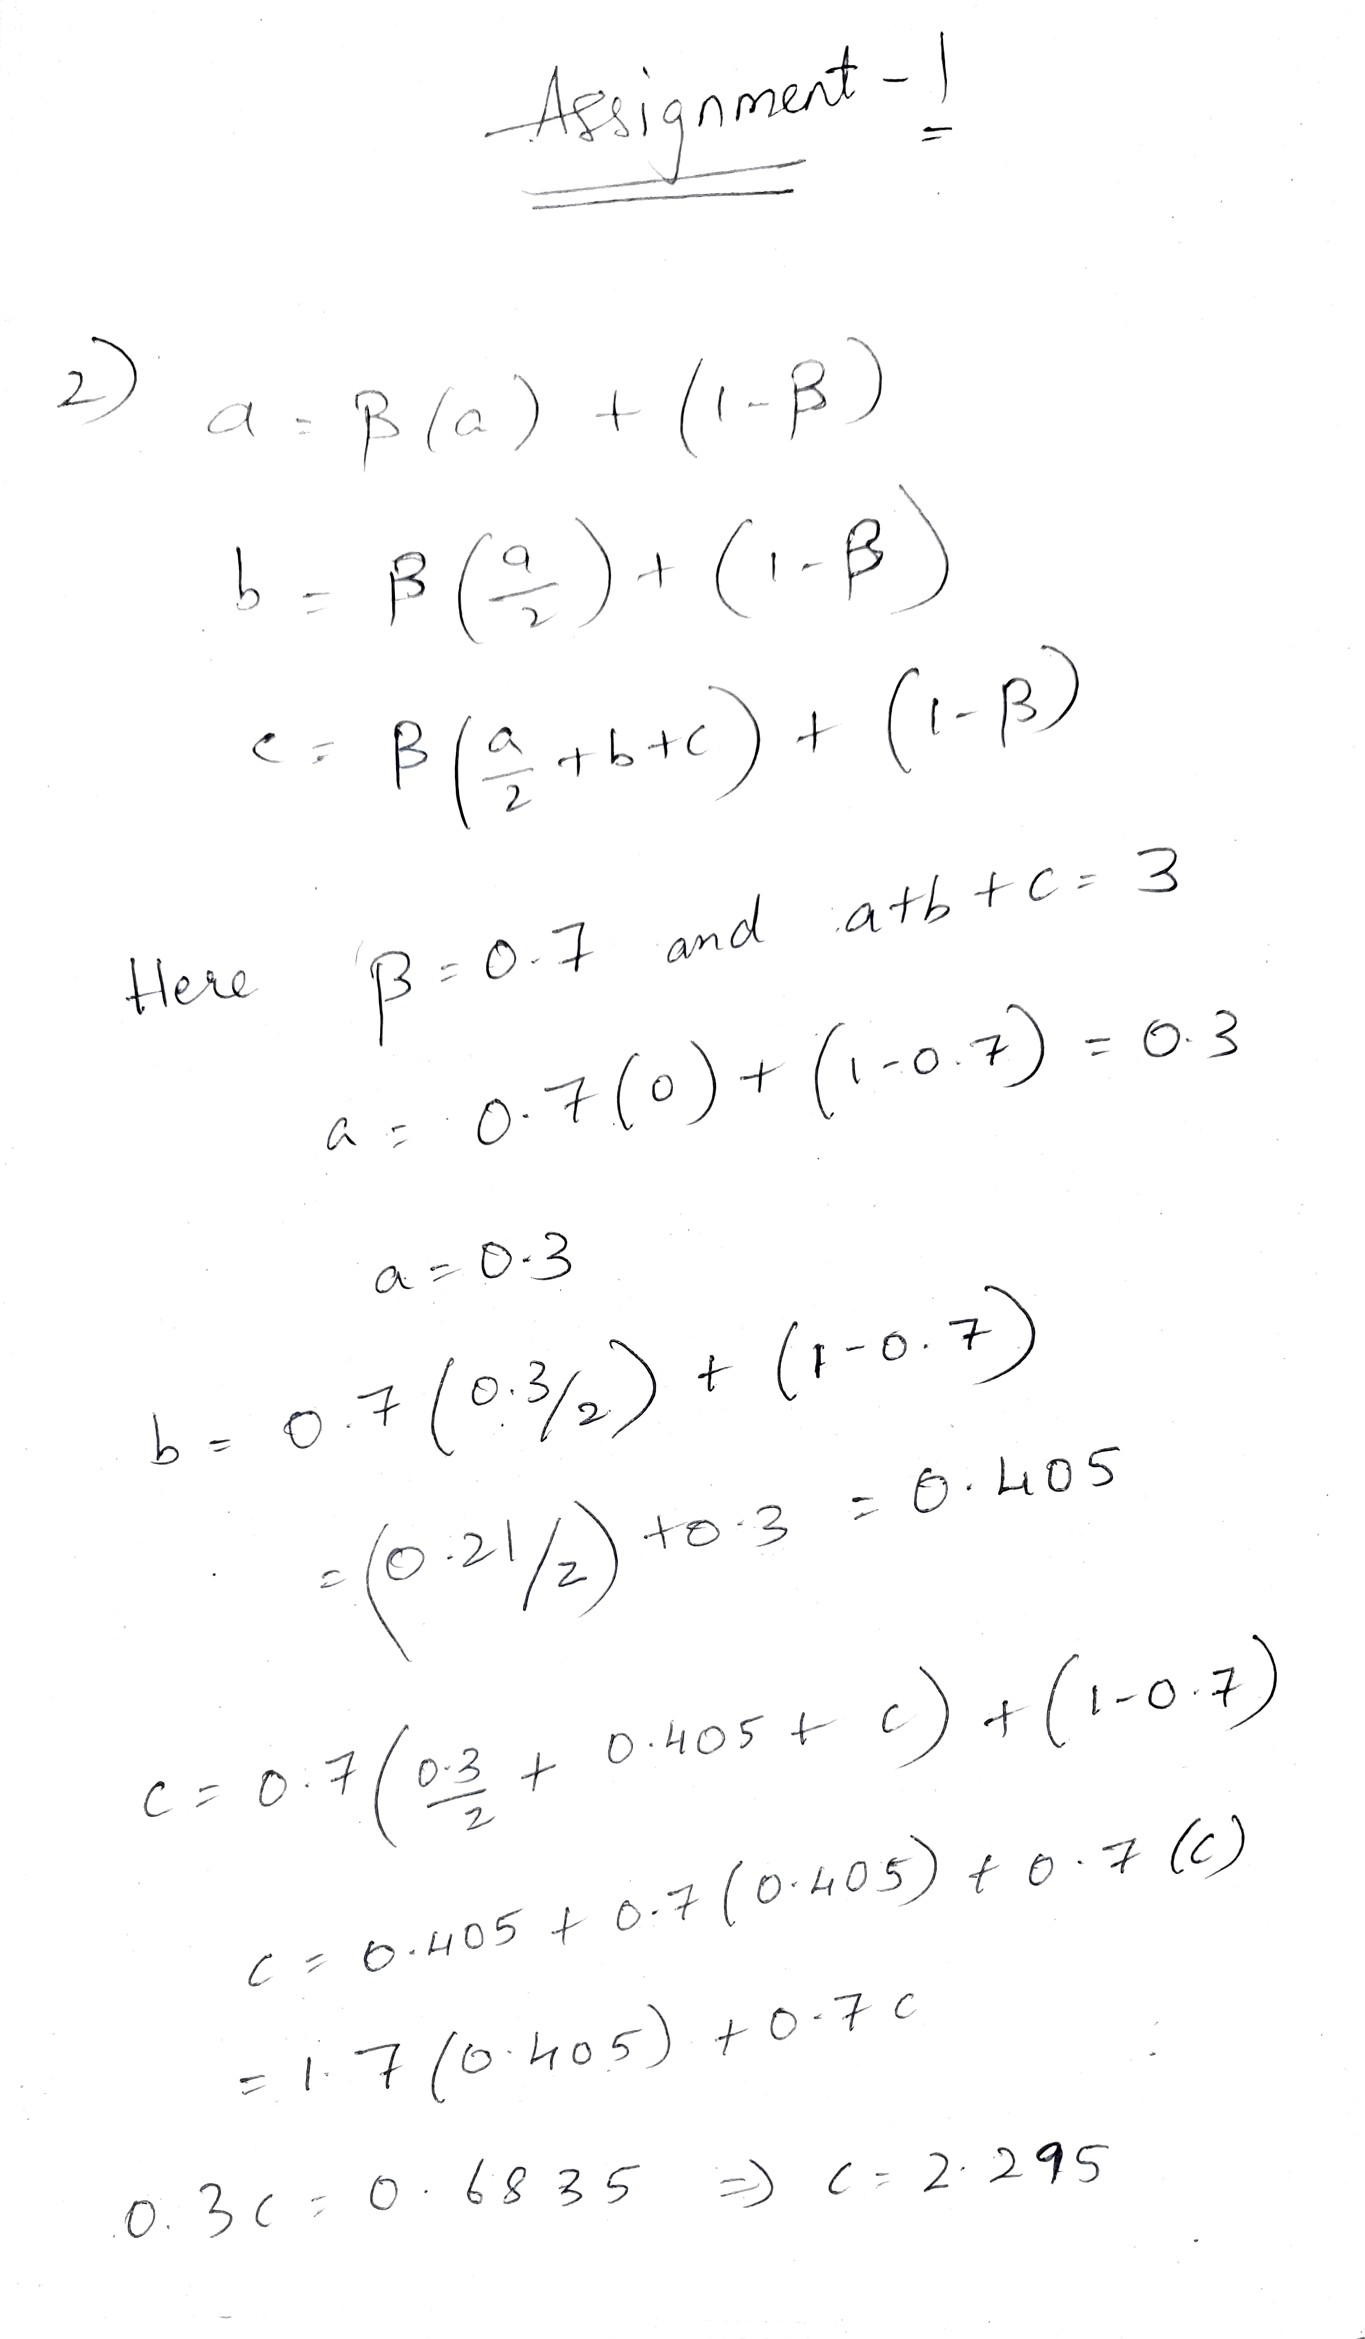 Assignment - 1
2) a = β(a) + (1-β)
b = β(a/2) + (1-β)
c = β(a/2 + b + c) + (1-β)
Here β = 0.7 and a+b+c = 3
a = 0.7(0) + (1-0.7) = 0.3
a = 0.3
b = 0.7(0.3/2) + (1-0.7)
= (0.21/2) + 0.3 = 0.405
c = 0.7(0.3/2 + 0.405 + c) + (1-0.7)
c = 0.405 + 0.7(0.405) + 0.7(c)
= 1.7(0.405) + 0.7c
0.3c = 0.6835 ⇒ c = 2.295